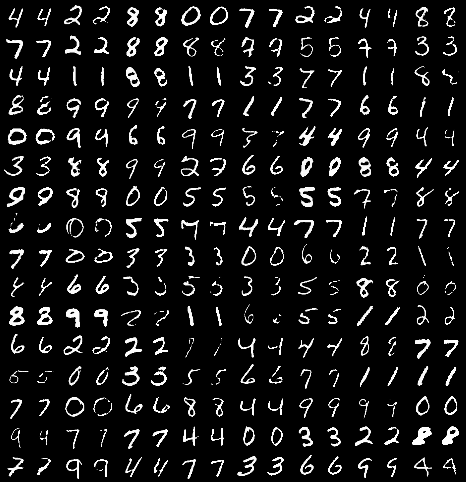 4 4 2 2 8 8 0 0 7 7 2 2 4 4 8 8
7 7 2 2 8 8 8 8 7 7 5 5 7 7 3 3
4 4 1 1 8 8 1 1 3 3 7 7 1 1 8
8 8 9 9 9 9 7 7 1 1 7 7 6 6 1 1
0 0 9 9 6 6 9 9 7 7 4 4 9 9 4 4
3 3 8 8 9 9 2 2 6 6 0 0 8 8 4 4
9 9 8 8 0 0 5 5 5 5 5 5 7 7 8 8
0 0 5 5 7 7 4 4 7 7 1 1 7 7
7 7 0 0 3 3 3 3 0 0 6 6 2 2 1 1
4 4 6 6 3 3 5 5 3 3 5 5 8 8 0 0
8 8 9 9 2 2 1 1 6 5 5 1 1 2 2
6 6 2 2 2 2 4 4 4 4 8 8 7 7
5 5 0 0 3 3 5 5 6 6 7 7 1 1 1 1
7 7 0 0 6 6 8 8 4 4 9 9 9 9 0 0
9 4 7 7 7 7 4 4 0 0 3 3 2 2 8 8
7 7 9 9 4 4 7 7 3 3 6 6 9 9 4 4